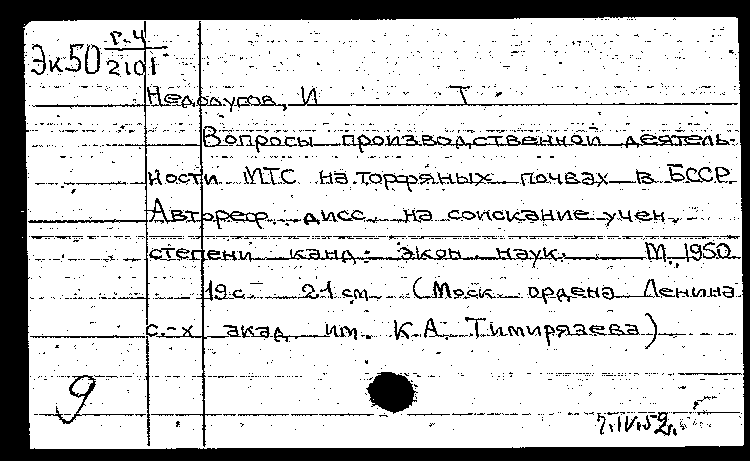 Р-4
Эк50 2101
Недолугов, И Т
Вопросы производственной деятель-
ности МТС на торфяных почвах в БССР
Автореф. дисс. на соискание учен.
степени канд. экон. наук. М., 1950
19 с 21 см (Моск. ордена Ленина
с.-х акад. им. К.А. Тимирязева)
9
7.IV.52.